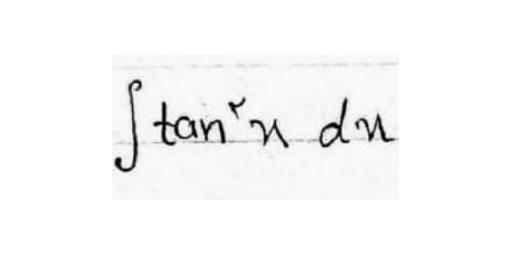 ∫ tan²x dx